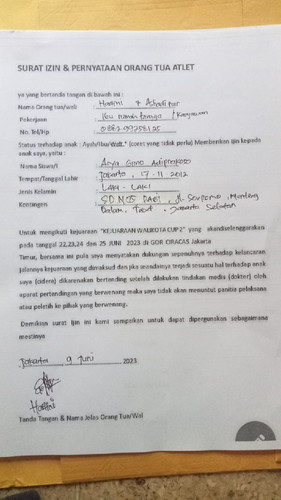 SURAT IZIN & PERNYATAAN ORANG TUA ATLET
ya yang bertanda tangan di bawah ini :
Nama Orang tua/wali :
Pekerjaan : Ibu rumah tangga / Karyawan
No. Tel/Hp :
Status terhadap anak : Ayah/Ibu/Wali.* (coret yang tidak perlu) Memberikan ijin kepada
anak saya, yaitu :
Nama Siswa/i : Arya Gono
Tempat/Tanggal Lahir : Jakarta, 17-11-2012
Jenis Kelamin : LAKI - LAKI
Kontingen : SD N 05 PAGI, Jl. Menteng
Dalam, Tebet, Jakarta Selatan
Untuk mengikuti kejuaraan "KEJUARAAN WALIKOTA CUP 2" yang akandiselenggarakan
pada tanggal 22,23,24 dan 25 JUNI 2023 di GOR CIRACAS Jakarta
Timur, bersama ini pula saya menyatakan dukungan sepenuhnya terhadap kelancaran
jalannya kejuaraan yang dimaksud dan jika seandainya terjadi sesuatu hal terhadap anak
saya (cidera) dikarenakan bertanding setelah dilakukan tindakan medis (dokter) oleh
aparat pertandingan yang berwenang maka saya tidak akan menuntut panitia pelaksana
atau pelatih ke pihak yang berwenang.
Demikian surat ijin ini kami sampaikan untuk dapat dipergunakan sebagaimana
mestinya
Jakarta 9 Juni 2023
Tanda Tangan & Nama Jelas Orang Tua/Wali